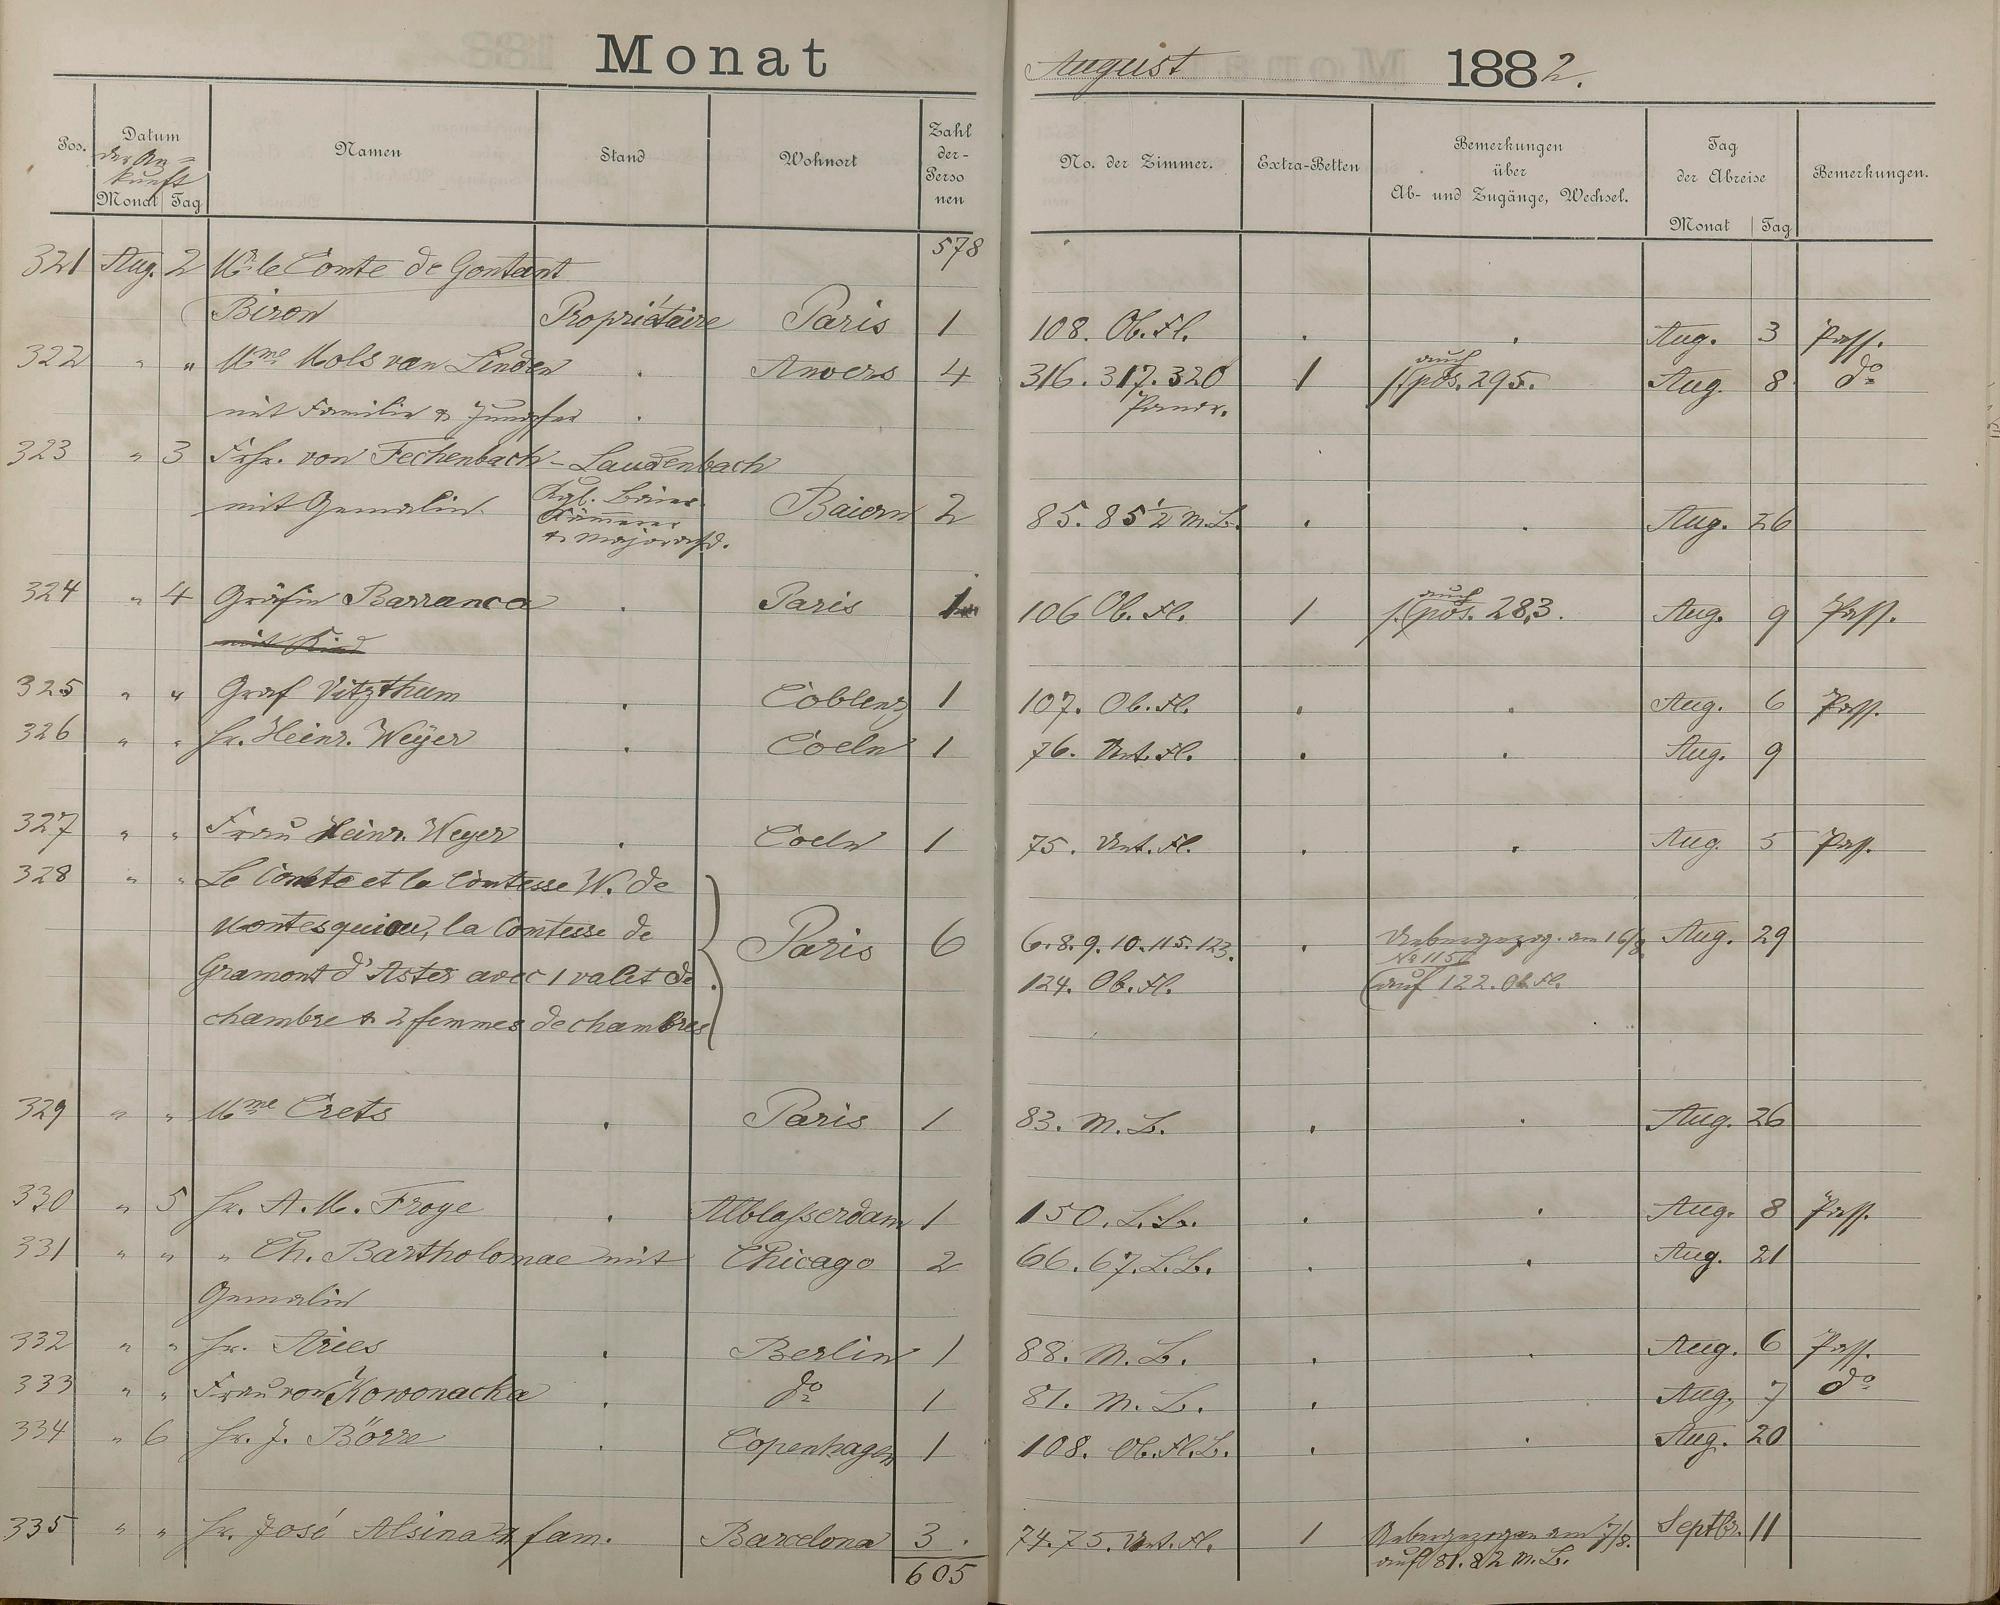 Monat August 1882.
Pos. Datum der An= kunft Monat Tag Namen Stand Wohnort Zahl der Perso nen No. der Zimmer. Extra-Betten Bemerkungen über Ab- und Zugänge, Wechsel. Tag der Abreise Monat Tag Bemerkungen.
578
321 Aug. 2 Mr. le Comte de Gontant
Biron Propriétaire Paris 1 108. Ob. Fl. . . Aug. 3 Pass.
322 " " Mme Mols van Linden . Anvers 4 316. 317. 320 1 auch pos. 295. Aug. 8 do
mit Familie & Jungfer .
323 " 3 Frhr. von Fechenbach-Laudenbach
mit Gemalin. Kgl. Baier. Kämmerer Baiern 2 85. 85 1/2 M. B. . . Aug. 26
324 " 4 Gräfin Barranca . Paris 1 106 Ob. Fl. 1 auch pos. 283. Aug. 9 Pass.
mit Kind
325 " " Graf Vitzthum . Coblenz 1 107. Ob. Fl. . . Aug. 6 Pass.
326 " " Hr. Heinr. Weÿer . Coeln 1 76. Unt. Fl. . . Aug. 9
327 " " Frau Heinr. Weyer . Coeln 1 75. Unt. Fl. . . Aug. 5 Pass.
328 " " Le Comte et la Comtesse W. de
Montesquiou, la Comtesse de Paris 6 6. 8. 9. 10. 115. 123. . Uebergezog. am 16/8. Aug. 29
No 115
Gramont d'Aster avec 1 valet de 124. Ob. Fl. auf 122. Ob. Fl.
chambre & 2 femmes de chambres
329 " " Mme Crets . Paris 1 83. M. B. . . Aug. 26
330 " 5 Hr. A. M. Froge . Alblasserdam 1 150. L. B. . . Aug. 8 Pass.
331 " " " Ch. Bartholomae mit Chicago 2 66. 67. L. B. . . Aug. 21
Gemalin
332 " " Hr. Aries . Berlin 1 88. M. B. . . Aug. 6 Pass.
333 " " Frau von Kowonacka . do 1 81. M. B. . Aug. 7 do
334 " 6 Hr. J. Börre . Copenhagen 1 108. Ob. Fl. B. . . Aug. 20
335 " " Hr. José Alsina & fam. Barcelona 3. 74. 75. Unt. Fl. 1 Uebergezogen am 7/8. Septbr. 11
auf 81. 82 M. B.
605